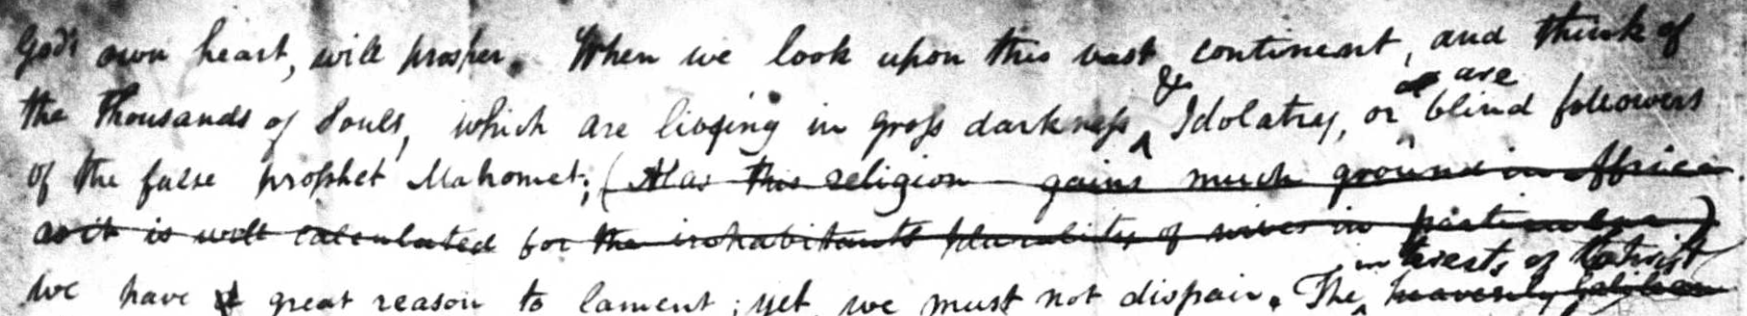 God's own heart, will prosper. When we look upon this vast continent, and think of
the thousands of Souls, which are living in gross darkness & Idolatry, or are blind followers
of the false prophet Mahomet; (Alas this religion gains much ground in Africa
as it is well calculated for the inhabitants plurality of wives in particular)
we have great reason to lament; yet we must not dispair. The interests of Christ
heavenly